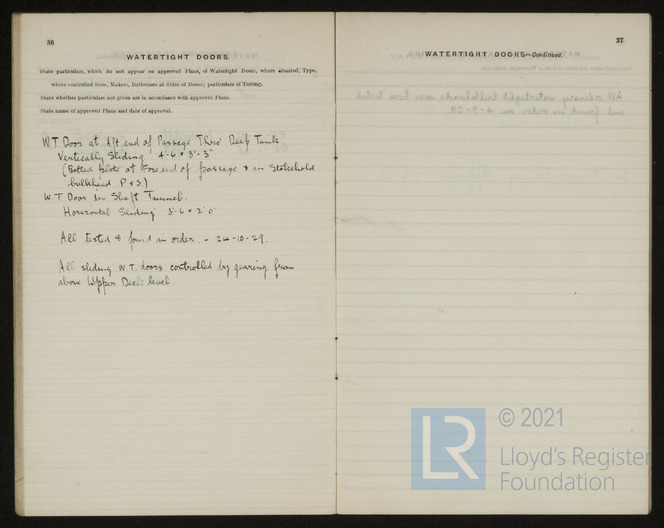 36
WATERTIGHT DOORS.
State particulars, which do not appear on approved Plans, of Watertight Doors, where situated, Type,
where controlled from, Makers, Buttresses at Sides of Doors; particulars of Testing.
State whether particulars not given are in accordance with approved Plans.
State name of approved Plans and date of approval.
W.T. Door at Aft. end of Passage Thro' Deep Tank
Vertically Sliding 4'-6 × 3'-3"
(Bolted plate at Fore end of passage & in Stokehold
bulkhead P & S.)
W.T. Door in Shaft Tunnel.
Horizontal Sliding 5'-6 × 2'-0"
All tested & found in order. - 24-10-29.
All sliding W.T. doors controlled by gearing from
above Upper Deck level.
37
WATERTIGHT DOORS—Continued.
© 2021
LR
Lloyd's Register
Foundation